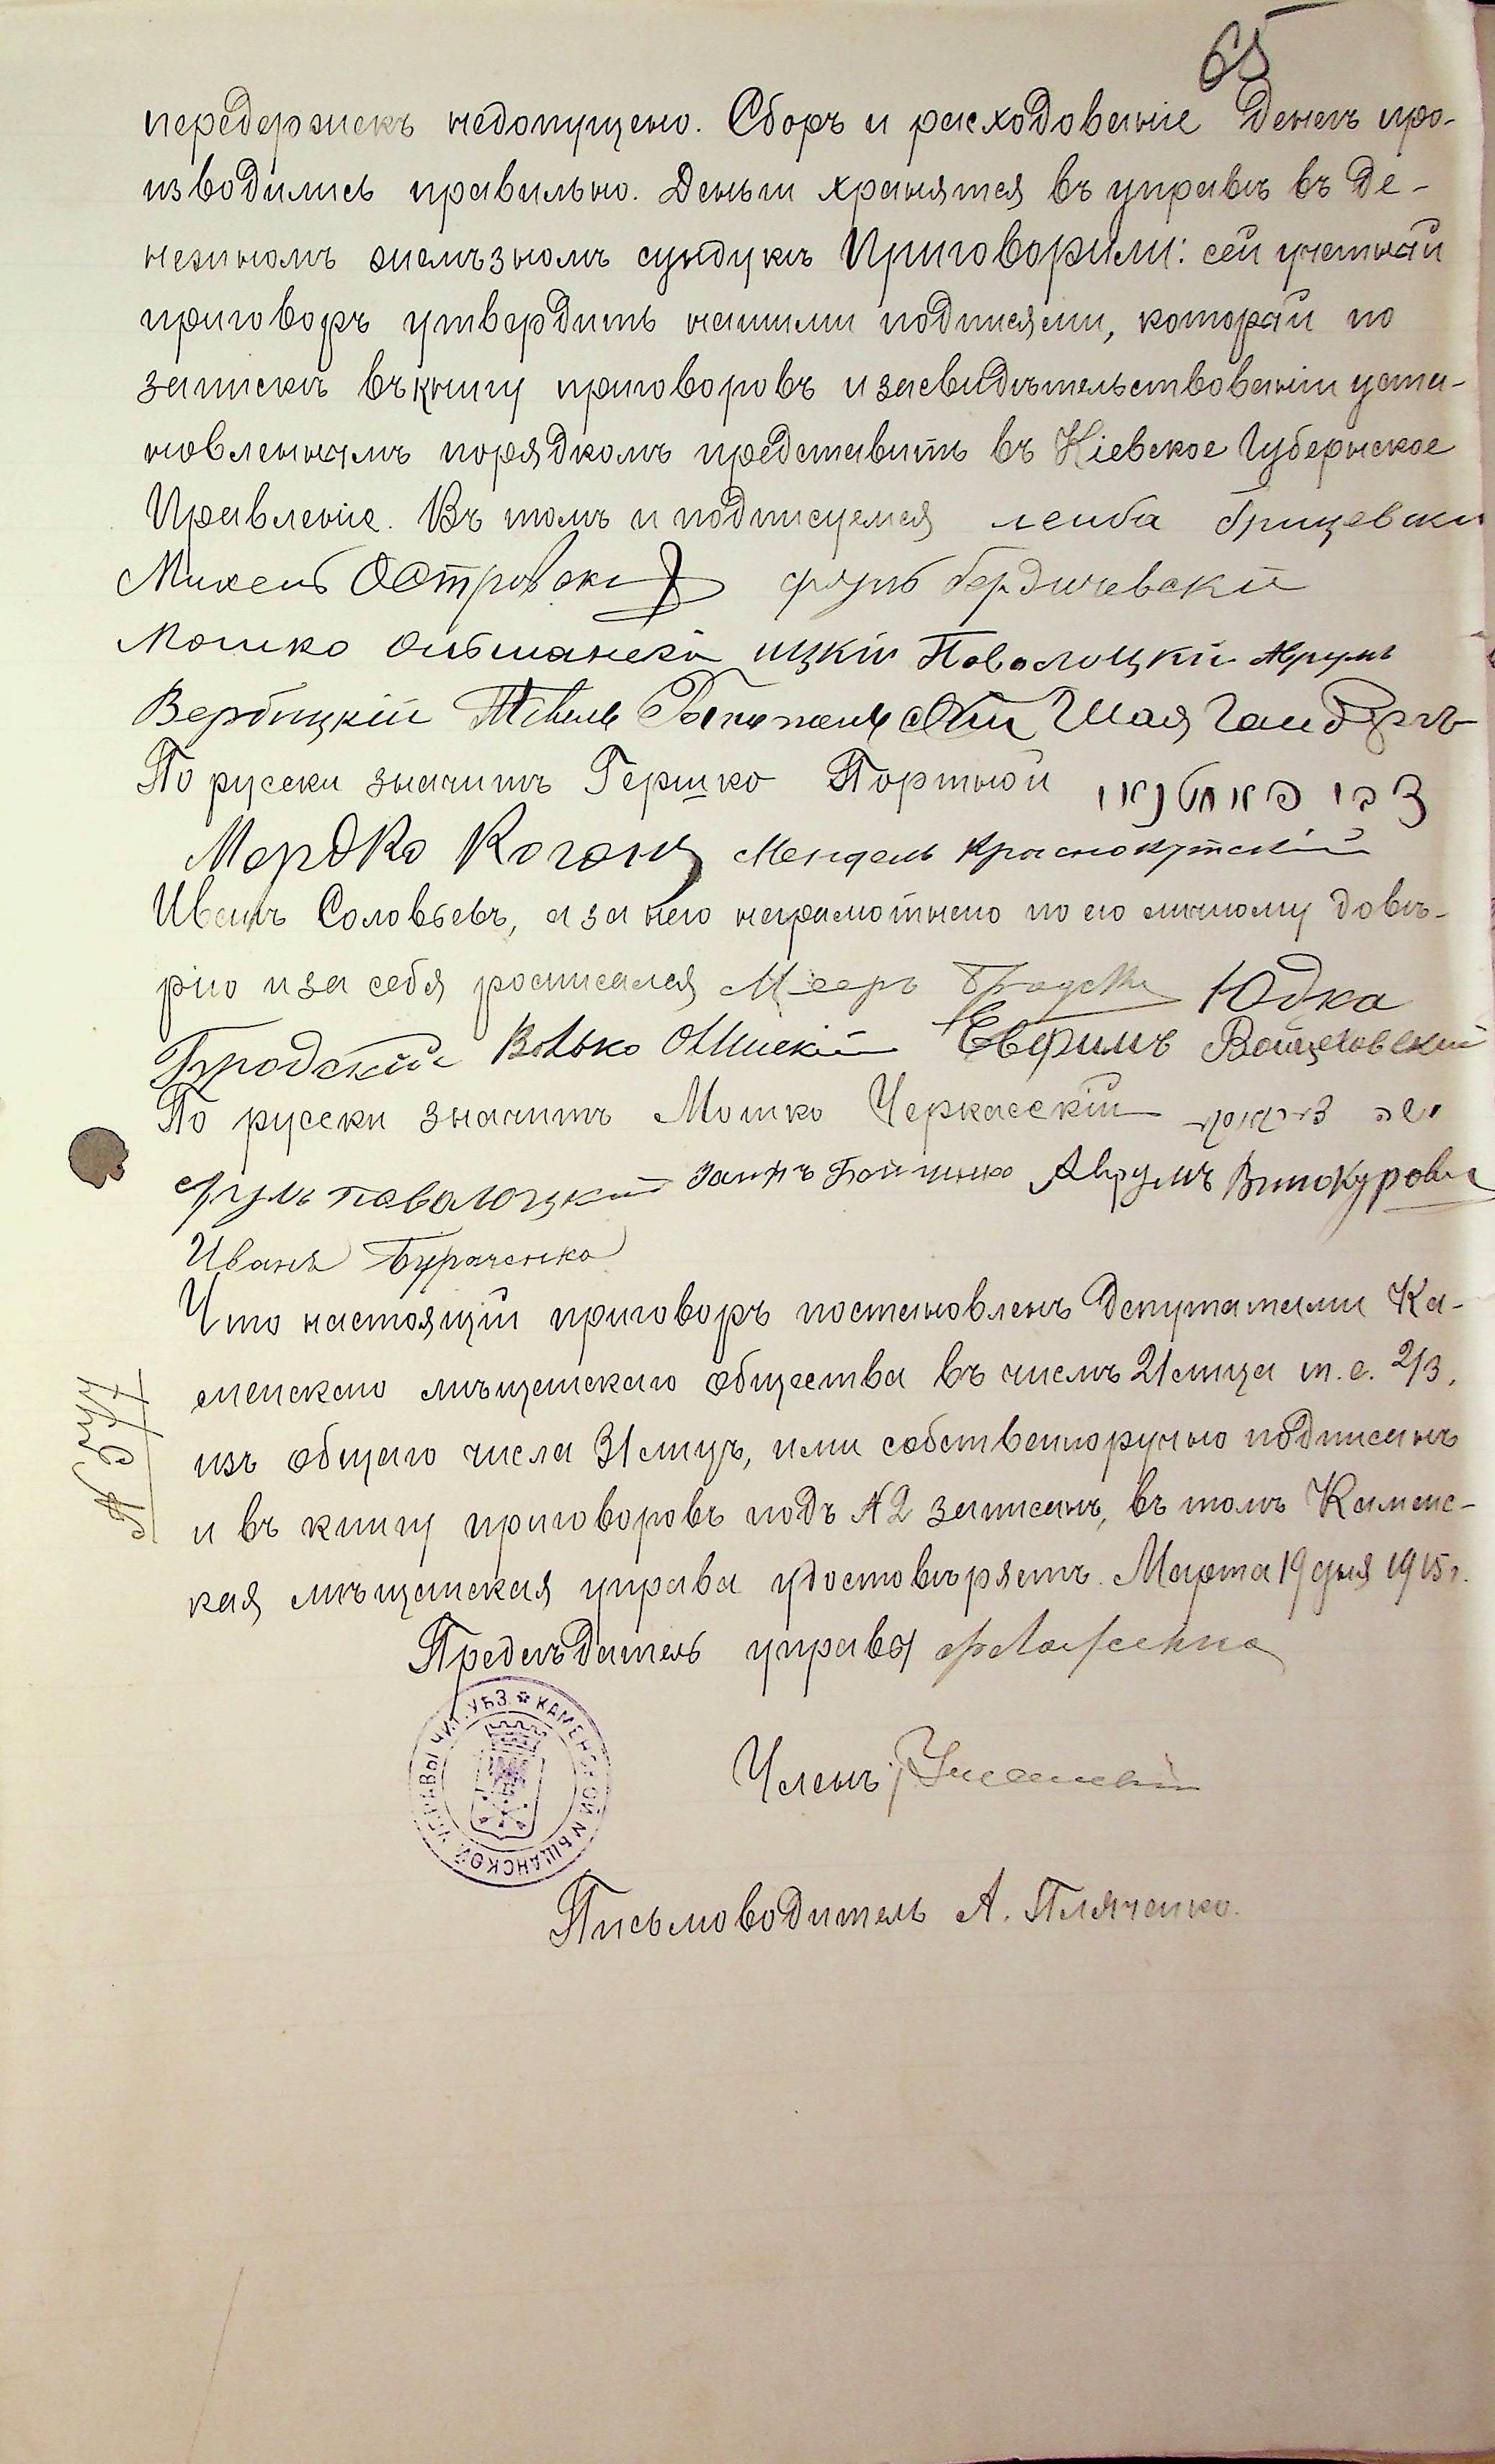 65
передержекъ недопущено. Сборъ и расходованіе денегъ про-
изводились правильно. Деньги хранятся въ управѣ въ де-
нежномъ желѣзномъ сундукѣ Приговорили: сей учетный
приговоръ утвердить нашими подписями, который по
запискѣ въ книгу приговоровъ и засвидѣтельствованіи уста-
новленнымъ порядкомъ представить въ Кіевское Губернское
Правленіе. Въ томъ и подписуемся лейба Грищевски
Михель Островски фроумъ бердичевскій
Мошко Ольшанскій ицкій Поволоцкій Аврумъ
Вербицкій Тевель Шая Гамбургъ
По русски значитъ Гершко Портной
Мордко Коганъ Мендель Краснокутскій
Иванъ Соловьевъ, а за него неграмотнаго по его личному довѣ-
рію и за себя росписался Мееръ Бродскій Юдка
Бродскій Волько Ольшскій Евфимъ Войцеховскій
По русски значитъ Мошко Черкасскій
поволоцкій Аврумъ Винокуровъ
Иванъ Бураченко
Что настоящій приговоръ постановленъ депутатами Ка-
менскаго мѣщанскаго общества въ числѣ 21 лица т. е. 2/3,
изъ общаго числа 31 лицъ, ими собственноручно подписанъ
и въ книгу приговоровъ подъ № 2 записанъ, въ томъ Каменс-
кая мѣщанская управа удостовѣряетъ. Марта 19 дня 1915 г.
Предсѣдатель управы
Членъ
КАМЕНСКОЙ МѢЩАНСКОЙ УПРАВЫ ЧИГ. УѢЗ.
Письмоводитель А. Пляченко.